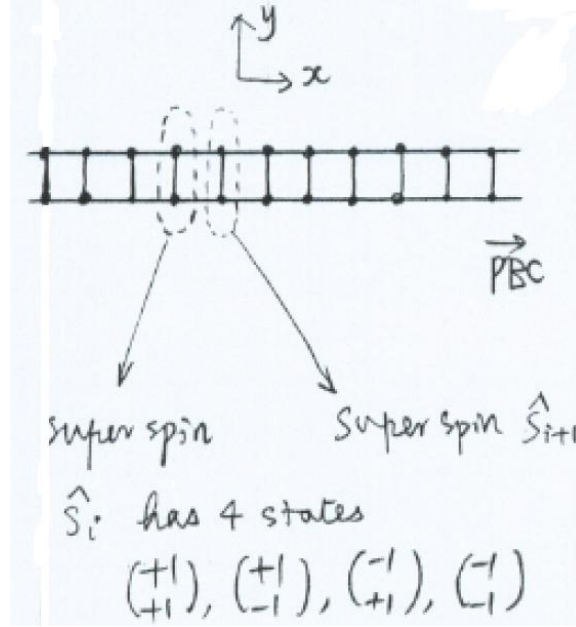 y
x
PBC
super spin
Super spin Ŝi+1
Ŝi has 4 states
(+1 +1), (+1 -1), (-1 +1), (-1 -1)